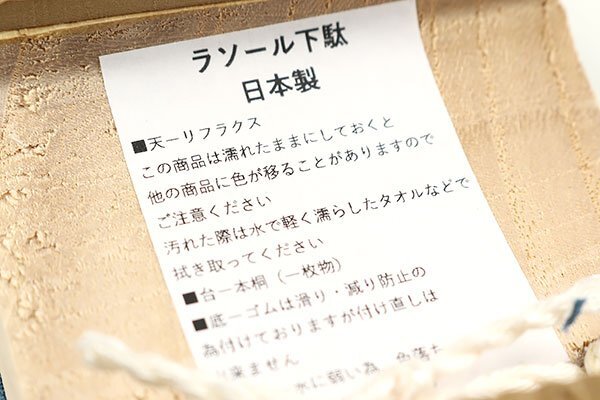 ラソール下駄
日本製
■天ーリフラクス
この商品は濡れたままにしておくと
他の商品に色が移ることがありますので
ご注意ください
汚れた際は水で軽く濡らしたタオルなどで
拭き取ってください
■台ー本桐（一枚物）
■底ーゴムは滑り・減り防止の
為付けておりますが付け直しは
来ません
水に弱い為、色落ち